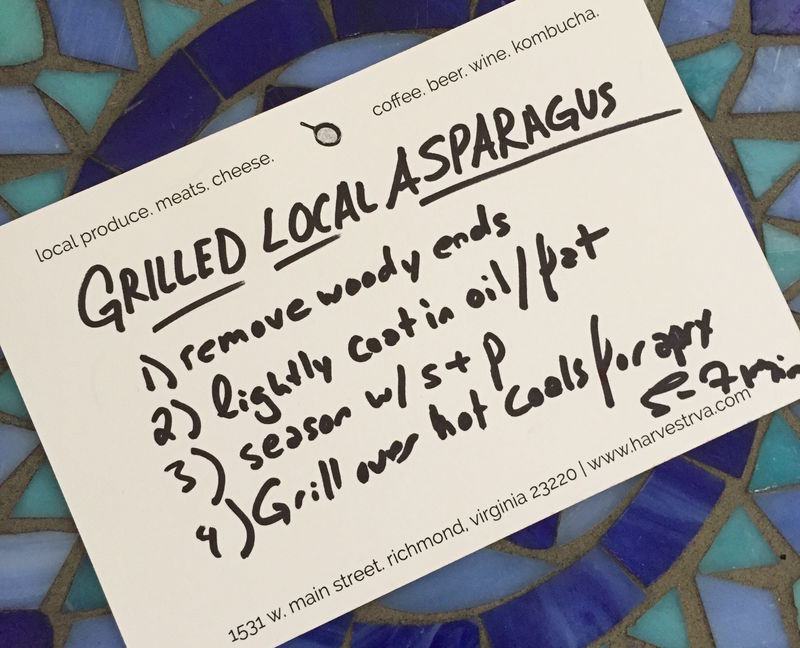 local produce. meats. cheese.
coffee. beer. wine. kombucha.
GRILLED LOCAL ASPARAGUS
1) remove woody ends
2) lightly coat in oil/fat
3) season w/ s + p
4) Grill over hot coals for aprx
5-7 min
1531 w. main street. richmond, virginia 23220 | www.harvestrva.com